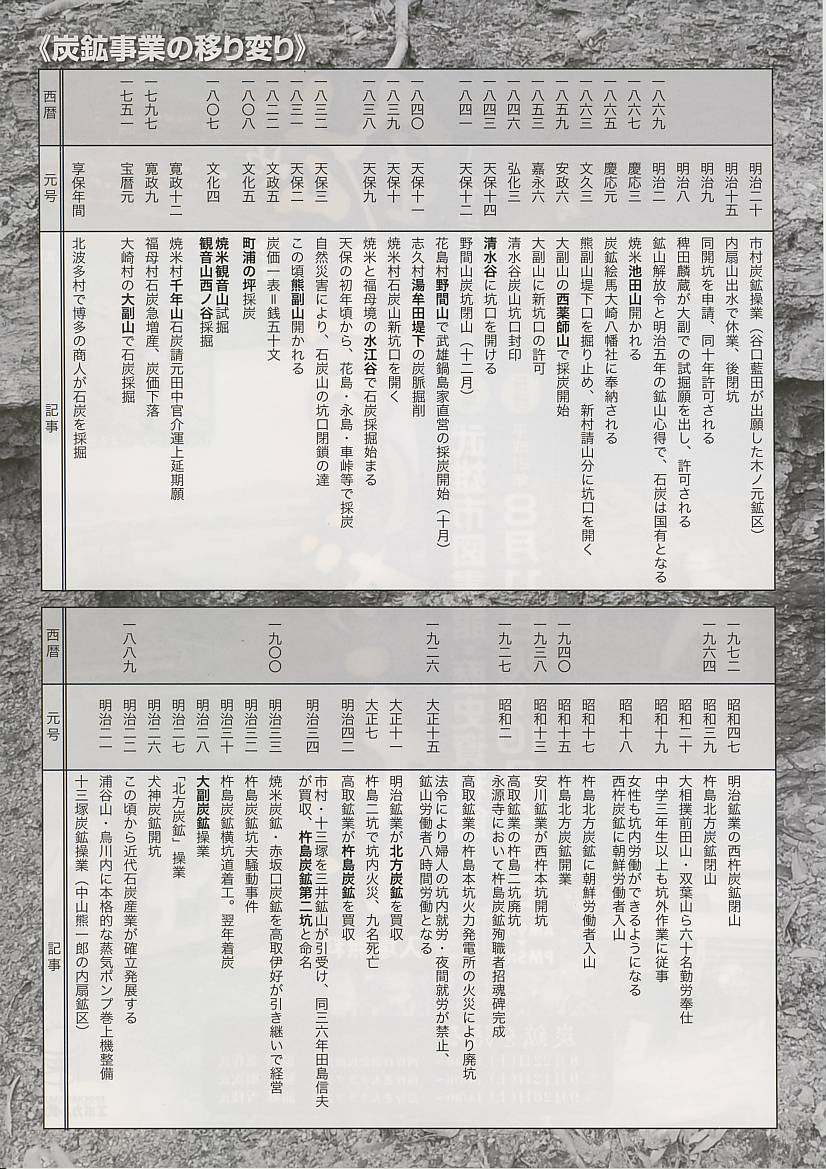 《炭鉱事業の移り変り》
西暦 元号 記事
享保年間 北波多村で博多の商人が石炭を採掘
一七五一 宝暦元 大崎村の大副山で石炭採掘
一七九七 寛政九 福母村石炭急増産、炭価下落
寛政十二 焼米村千年山石炭請元田中官介運上延期願
一八〇七 文化四 焼米観音山試掘
観音山西ノ谷採掘
一八〇八 文化五 町浦の坪採炭
一八二二 文政五 炭価一表＝銭五十文
一八三一 天保二 この頃熊副山開かれる
一八三二 天保三 自然災害により、石炭山の坑口閉鎖の達
天保の初年頃から、花島・永島・車峠等で採炭
一八三八 天保九 焼米と福母境の水江谷で石炭採掘始まる
一八三九 天保十 焼米村石炭山新坑口を開く
一八四〇 天保十一 志久村湯牟田堤下の炭脈掘削
花島村野間山で武雄鍋島家直営の採炭開始（十月）
一八四一 天保十二 野間山炭坑閉山（十二月）
一八四三 天保十四 清水谷に坑口を開ける
一八四六 弘化三 清水谷炭山坑口封印
一八五三 嘉永六 大副山に新坑口の許可
一八五九 安政六 大副山の西薬師山で採炭開始
一八六三 文久三 熊副山堤下口を掘り止め、新村請山分に坑口を開く
一八六五 慶応元 炭鉱絵馬大崎八幡社に奉納される
一八六七 慶応三 焼米池田山開かれる
一八六九 明治二 鉱山解放令と明治五年の鉱山心得で、石炭は国有となる
明治八 稗田麟蔵が大副での試掘願を出し、許可される
明治九 同開坑を申請、同十年許可される
明治十五 内扇山出水で休業、後閉坑
明治二十 市村炭鉱操業（谷口藍田が出願した木ノ元鉱区）
西暦 元号 記事
明治二一 十三塚炭鉱操業（中山熊一郎の内扇鉱区）
浦谷山・烏川内に本格的な蒸気ポンプ巻上機整備
一八八九 明治二二 この頃から近代石炭産業が確立発展する
明治二六 犬神炭鉱開坑
明治二七 「北方炭鉱」操業
明治二八 大副炭鉱操業
明治三十 杵島炭鉱横坑道着工。翌年着炭
明治三二 杵島炭鉱坑夫騒動事件
一九〇〇 明治三三 焼米炭鉱・赤坂口炭鉱を高取伊好が引き継いで経営
明治三四 市村・十三塚を三井鉱山が引受け、同三六年田島信夫
が買収、杵島炭鉱第二坑と命名
明治四二 高取鉱業が杵島炭鉱を買収
大正七 杵島二坑で坑内火災、九名死亡
大正十一 明治鉱業が北方炭鉱を買収
一九二六 大正十五 法令により婦人の坑内就労・夜間就労が禁止、
鉱山労働者八時間労働となる
高取鉱業が杵島本坑火力発電所の火災により廃坑
一九二七 昭和二 高取鉱業の杵島二坑廃坑
永源寺において杵島炭鉱殉職者招魂碑完成
一九三八 昭和十三 安川鉱業が西杵本坑開坑
一九四〇 昭和十五 杵島北方炭鉱開業
昭和十七 杵島北方炭鉱に朝鮮労働者入山
昭和十八 女性も坑内労働ができるようになる
西杵炭鉱に朝鮮労働者入山
昭和十九 中学三年生以上も坑外作業に従事
昭和二十 大相撲前田山・双葉山ら六十名勤労奉仕
一九六四 昭和三九 杵島北方炭鉱閉山
一九七二 昭和四七 明治鉱業の西杵炭鉱閉山